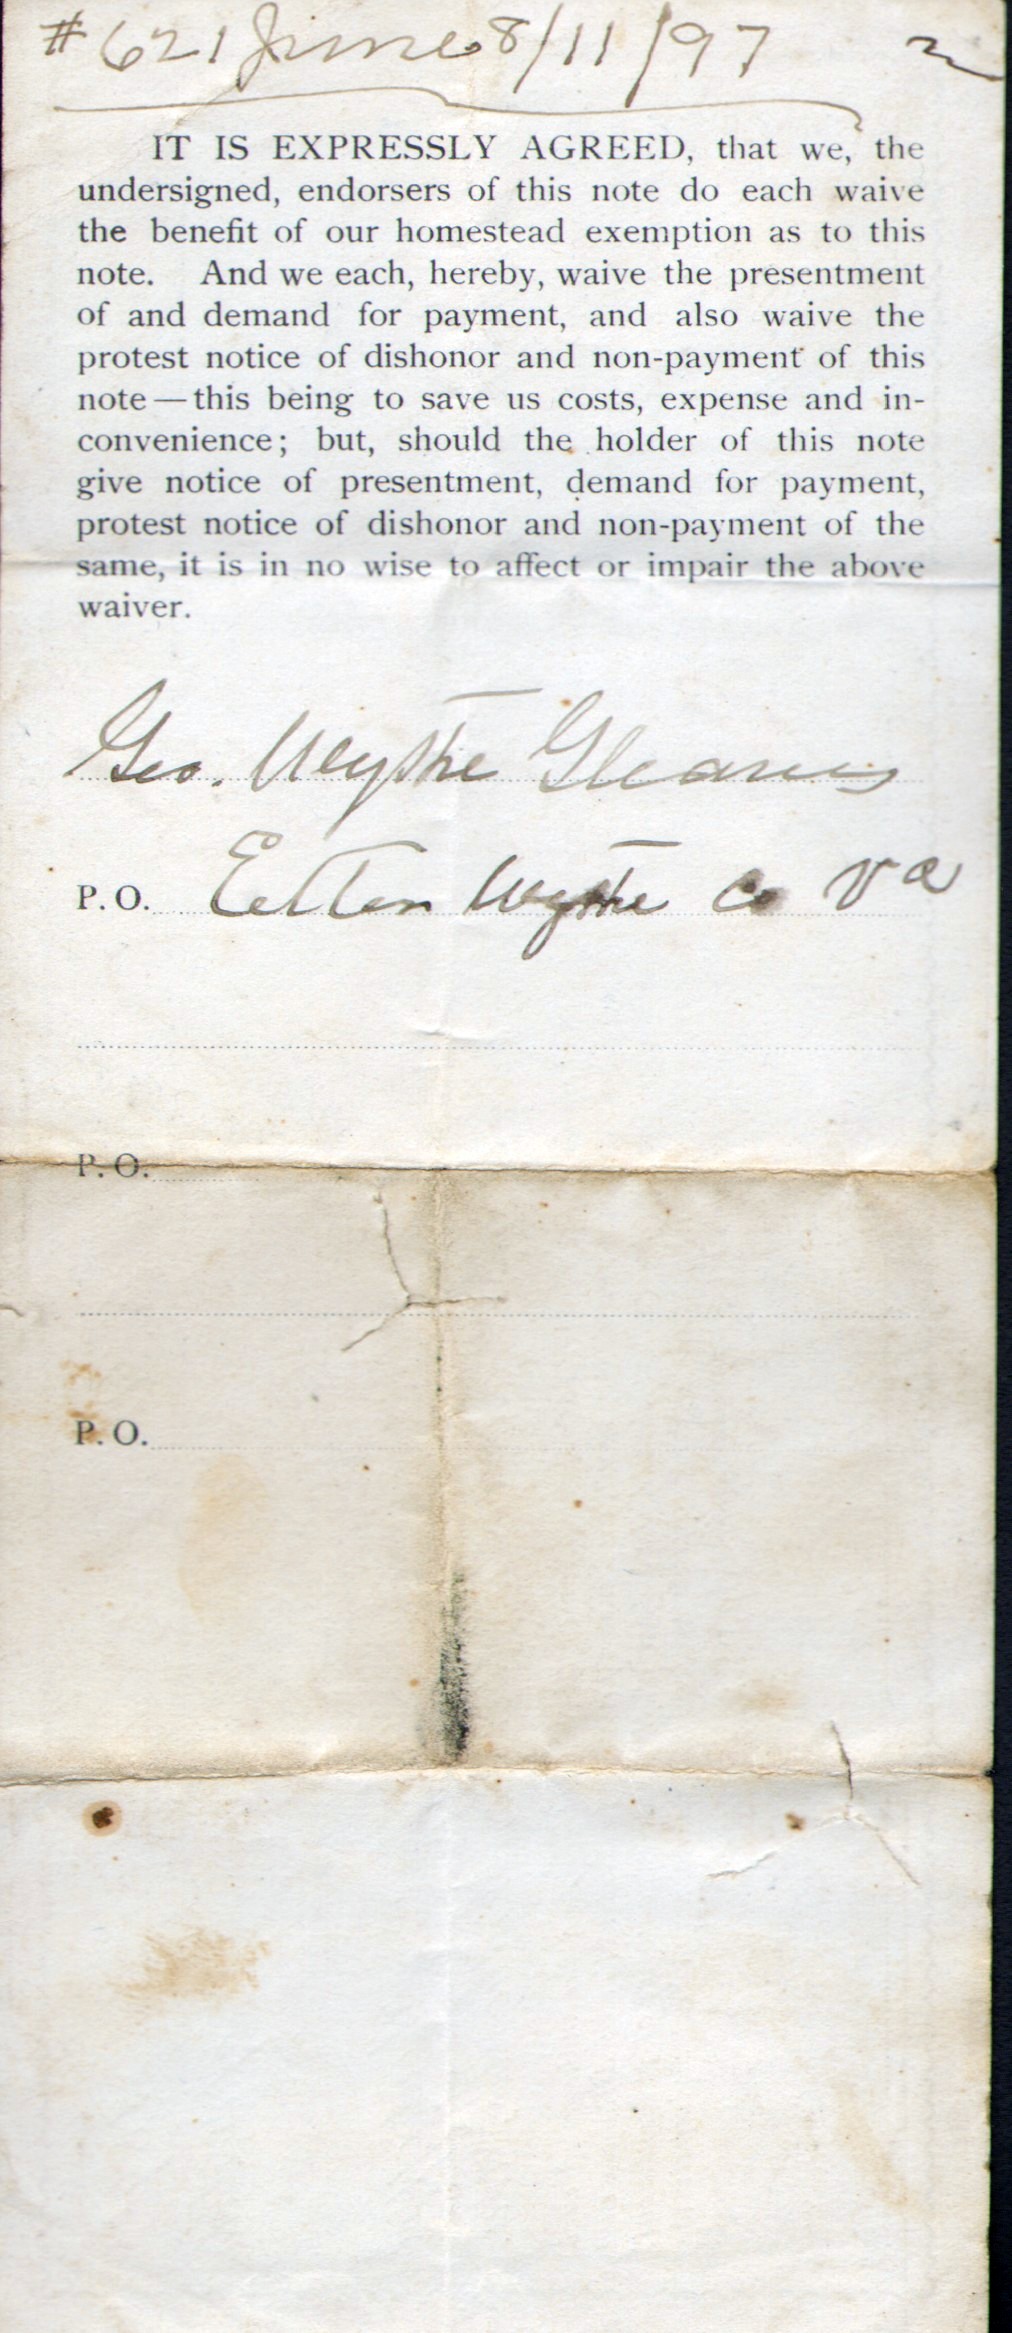 #621 June 8/11/97
IT IS EXPRESSLY AGREED, that we, the
undersigned, endorsers of this note do each waive
the benefit of our homestead exemption as to this
note. And we each, hereby, waive the presentment
of and demand for payment, and also waive the
protest notice of dishonor and non-payment of this
note—this being to save us costs, expense and in-
convenience; but, should the holder of this note
give notice of presentment, demand for payment,
protest notice of dishonor and non-payment of the
same, it is in no wise to affect or impair the above
waiver.
Geo. Wythe Gleaves
P.O. Wythe Co Va
P.O.
P.O.